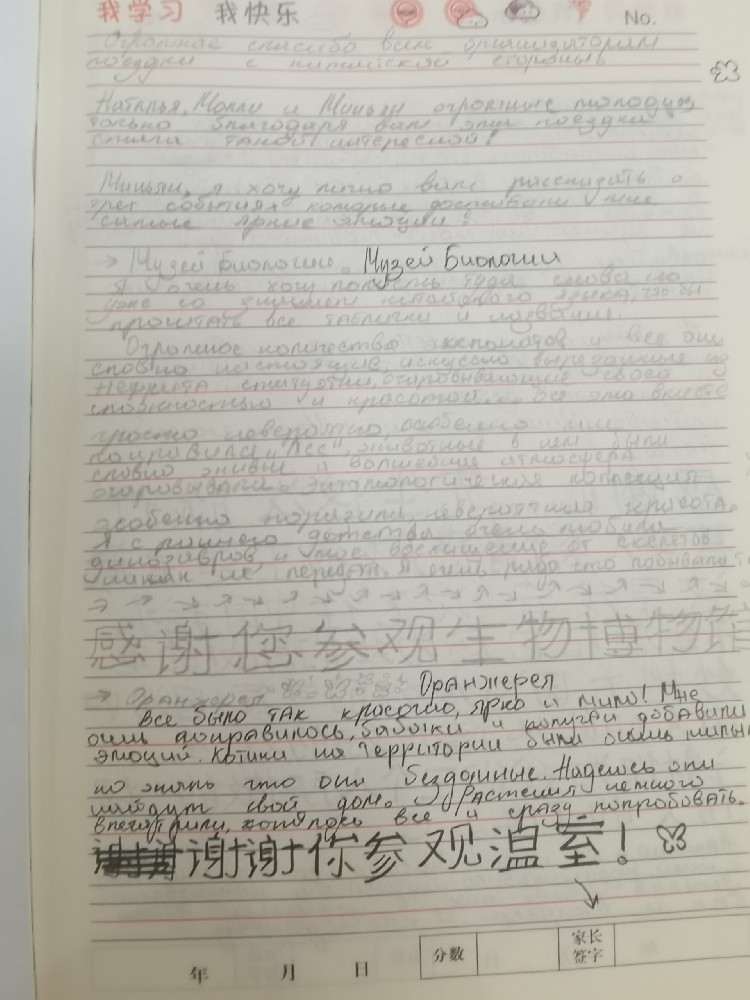 我学习 我快乐 No.
Огромное спасибо вам организаторам
поездки с китайской стороны
Наталья, Молли и Миньян огромные молодцы
только благодаря вам эта поездка
стала такой интересной!
Миньян, я хочу лично вам рассказать о
трёх событиях которые доставили мне
самые яркие эмоции!
→ Музей Биологии. Музей Биологии
Я очень хочу
уже со знанием китайского языка, что бы
прочитать все таблички и
Огромное количество экспонатов и все они
словно настоящие, искусно вырезанные из
нефрита статуэтки, очаровывающие своей
сложностью и красотой. Все это вместе
просто невероятно, особенно мне
понравился "Лес", животные в нем были
словно живые а волшебная атмосфера
очаровывала. Энтомологическая коллекция
особенно поразила, невероятная красота.
Я с раннего детства очень люблю
динозавров и мое восхищение от скелетов
никак не передать. Я очень рада что побывала
感谢您参观生物博物馆
→ Оранжерея Оранжерея
Все было так красочно, ярко и мило! Мне
очень понравилось, бабочки и попугаи добавили
эмоций. Котики на территории были очень милы
но жаль что они бездомные. Надеюсь они
найдут свой дом. Растения немного
впечатлили, хотелось все и сразу попробовать.
谢谢你参观温室!
年 月 日 分数 家长
签字